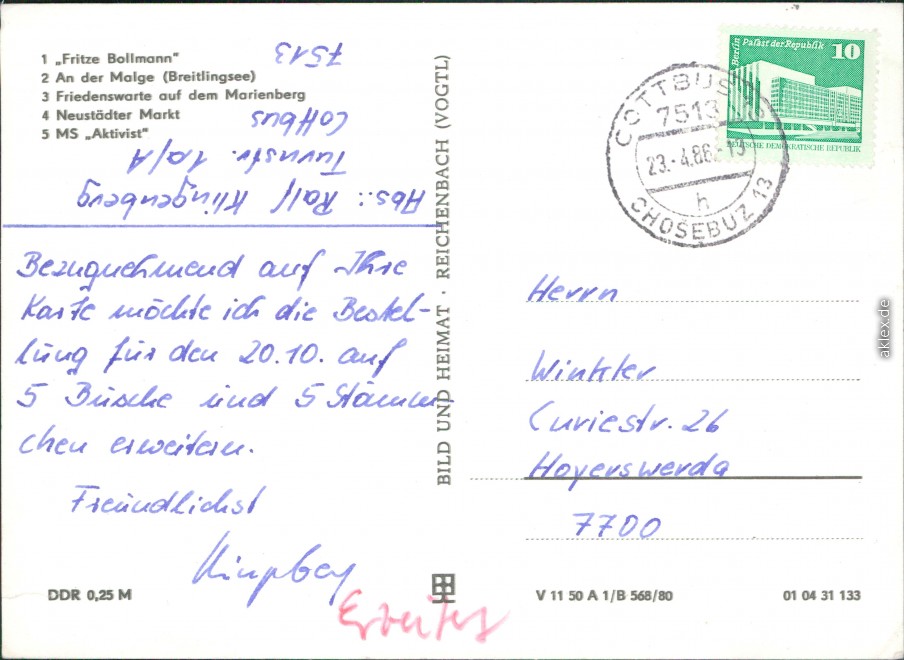 1 „Fritze Bollmann"
2 An der Malge (Breitlingsee)
3 Friedenswarte auf dem Marienberg
4 Neustädter Markt
5 MS „Aktivist"
Abs.: Ralf Klingenberg
Turnstr. 1a/A
Cottbus
7513
Bezugnehmend auf Ihre
Karte möchte ich die Bestel-
lung für den 20.10. auf
5 Büsche und 5 Stämm-
chen erweitern.
Freundlichst
BILD UND HEIMAT · REICHENBACH (VOGTL)
Berlin Palast der Republik 10
DEUTSCHE DEMOKRATISCHE REPUBLIK
COTTBUS 13
7513
23.-4.86.-19
h
CHOSEBUZ 13
Herrn
Winkler
Curiestr. 26
Hoyerswerda
7700
DDR 0,25 M
V 11 50 A 1/B 568/80
01 04 31 133
aklex.de